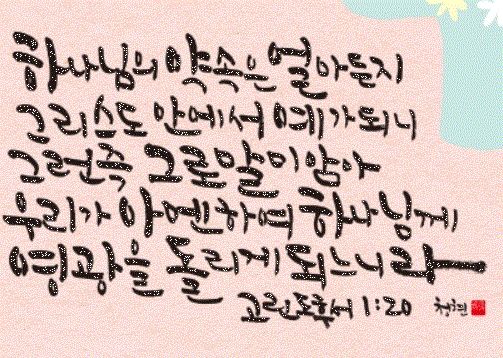 하나님의 약속은 얼마든지
그리스도 안에서 예가되니
그런즉 그로말미암아
우리가 아멘하여 하나님께
영광을 돌리게 되느니라
고린도후서 1:20